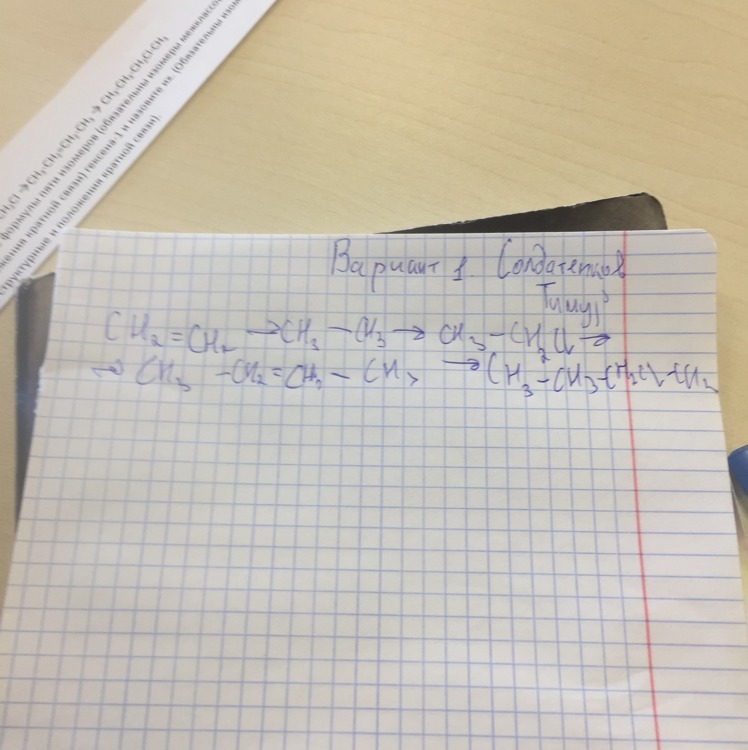 CH₃Cl → CH₃-CH₂=CH₂-CH₃ → CH₃-CH₃-CH₂Cl-CH₃
формулы пяти изомеров (обязательны изомеры межклассо
жения кратной связи) гексена-1 и назовите их. (Обязательны изом
структурные и положения кратной связи).
Вариант 1. Солдатенков
Тимур
CH₂=CH₂ → CH₃ – CH₃ → CH₃ – CH₂Cl →
→ CH₃ – CH₂=CH₂ – CH₃ → CH₃ – CH₃ – CH₂Cl – CH₃